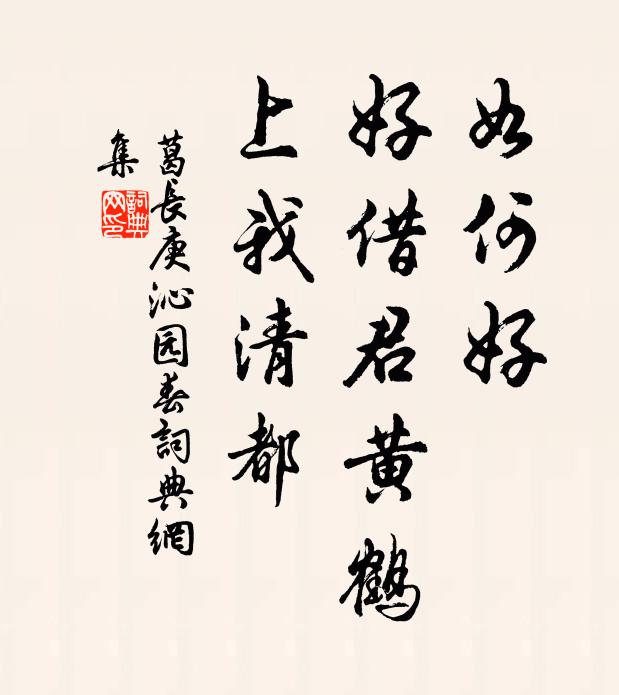 如何好
好借君黄鹤
上我清都
葛長庚沁园春詞典網
集
詞典网印